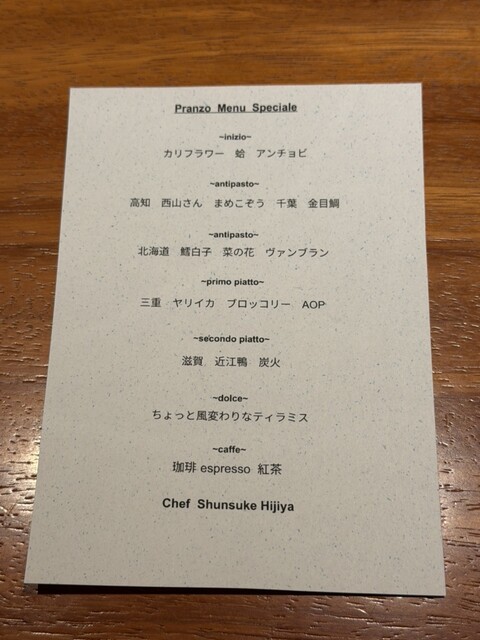 Pranzo Menu Speciale
~inizio~
カリフラワー 蛤 アンチョビ
~antipasto~
高知 西山さん まめこぞう 千葉 金目鯛
~antipasto~
北海道 鱈白子 菜の花 ヴァンブラン
~primo piatto~
三重 ヤリイカ ブロッコリー AOP
~secondo piatto~
滋賀 近江鴨 炭火
~dolce~
ちょっと風変わりなティラミス
~caffe~
珈琲 espresso 紅茶
Chef Shunsuke Hijiya